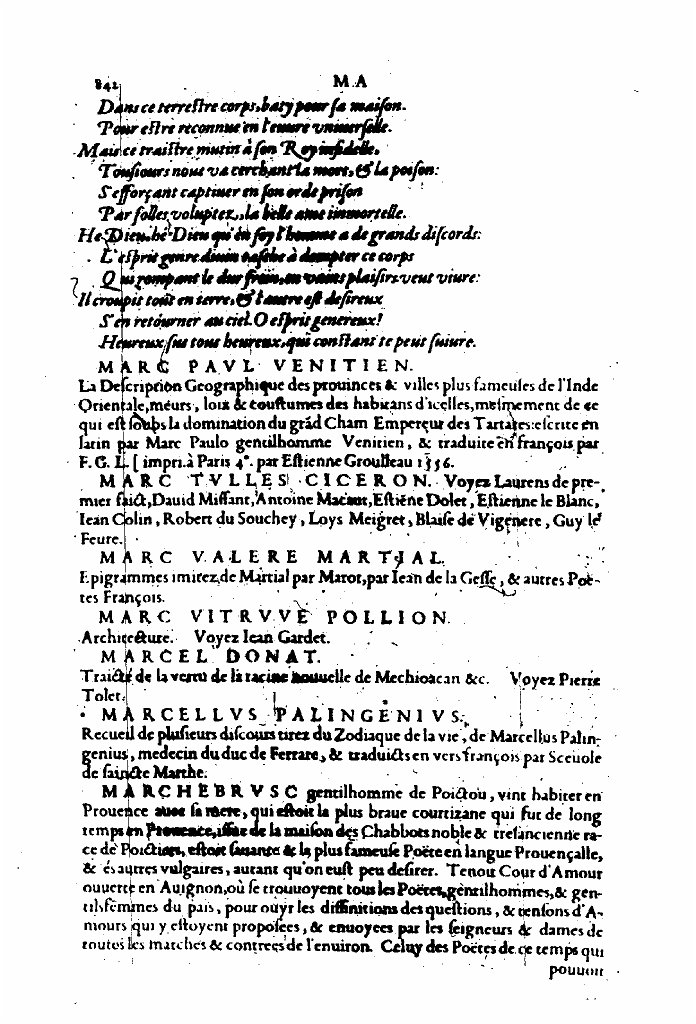 842 MA
Dans ce terrestre corps, baty pour sa maison.
Pour estre reconnue en l'euure vniuerselle.
Mais ce traistre mutin à son Roy infidelle,
Tousiours nous va cerchant la mort, & la poison:
S'efforçant captiuer en son orde prison
Par folles voluptez, la belle ame immortelle.
He Dieu, hé Dieu qu'en soy l'homme a de grands discords:
L'esprit genre diuin tasche à dompter ce corps
Qui rompant le dur frain, en vains plaisirs veut viure:
Il croupit tout en terre, & l'autre est desireux
S'en retourner au ciel. O esprit genereux!
Heureux, sus tous heureux, qui constant te peut suiure.
MARC PAVL VENITIEN.
La Description Geographique des prouinces & villes plus fameuses de l'Inde
Orientale, meurs, loix & coustumes des habitans d'icelles, mesmement de ce
qui est soubs la domination du grãd Cham Emperçur des Tartares: escrite en
latin par Marc Paulo gentilhomme Venitien, & traduite en françois par
F. G. L. [ impri. à Paris 4°. par Estienne Groulleau 1556.
MARC TVLLES CICERON. Voyez Laurens de pre-
mier faict, Dauid Missant, Antoine Macaut, Estiéne Dolet, Estienne le Blanc,
Iean Colin, Robert du Souchey, Loys Meigret, Blaise de Vigenere, Guy le
Feure.
MARC VALERE MARTIAL.
Epigrammes imitez de Martial par Marot, par Iean de la Gesse, & autres Poë-
tes François.
MARC VITRVVE POLLION.
Architecture. Voyez Iean Gardet.
MARCEL DONAT.
Traicté de la vertu de la racine nouuelle de Mechioacan &c. Voyez Pierre
Tolet.
MARCELLVS PALINGENIVS.
Recueil de plusieurs discours tirez du Zodiaque de la vie, de Marcellus Palin-
genius, medecin du duc de Ferrare, & traduicts en vers françois par Sceuole
de saincte Marthe.
MARCHEBRVSC gentilhomme de Poictou, vint habiter en
Prouence auec sa mere, qui estoit la plus braue courtizane qui fut de long
temps en Prouence, issue de la maison des Chabbots noble & tresancienne ra-
ce de Poictiers, estoit sauante & la plus fameuse Poëte en langue Prouençalle,
& és autres vulgaires, autant qu'on eust peu desirer. Tenou Cour d'Amour
ouuerte en Auignon, où se trouuoyent tous les Poëtes, gentilhommes, & gen-
tilsfémmes du païs, pour ouyr les diffinitions des questions, & tensons d'A-
mours qui y estoyent proposées, & enuoyees par les seigneurs & dames de
toutes les marches & contrees de l'enuiron. Celuy des Poëtes de ce temps qui
pouuoit